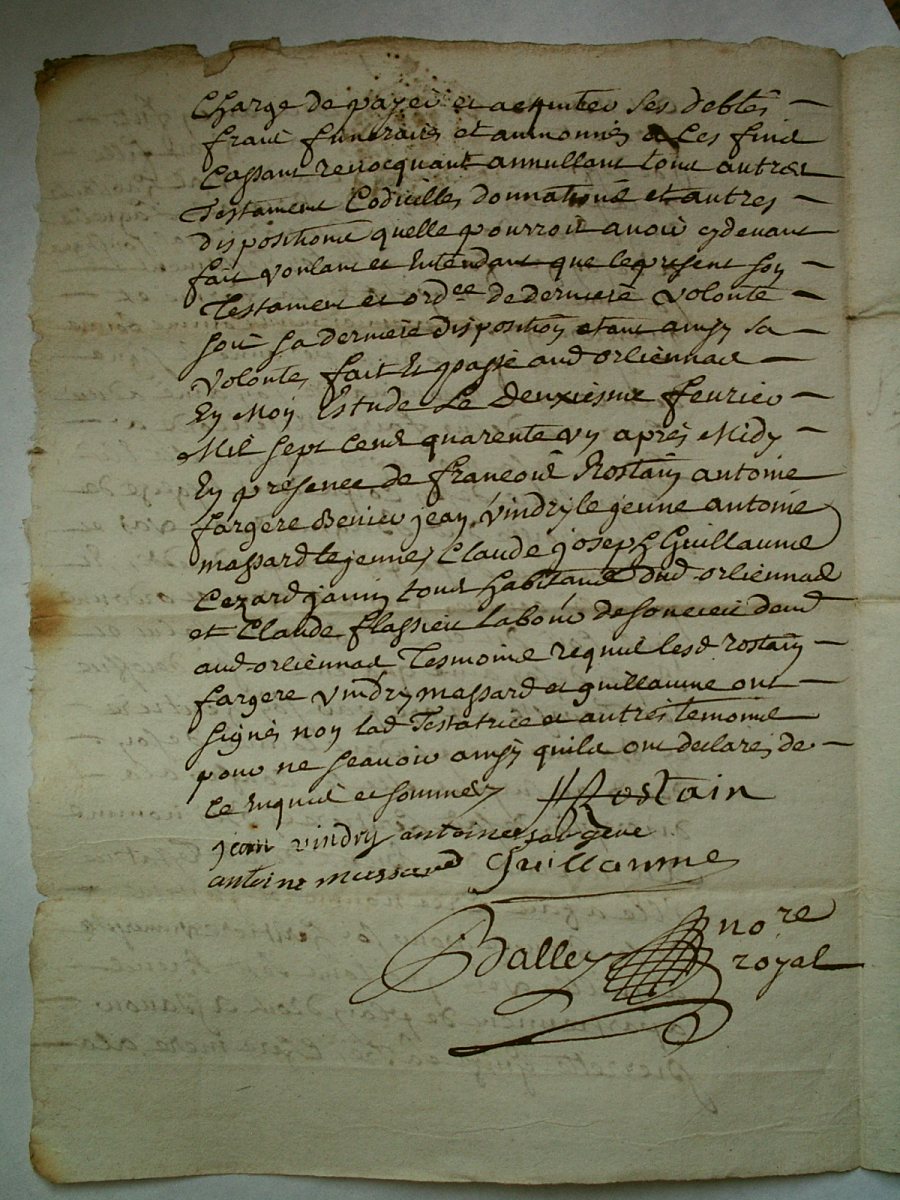 Charge de payer et acquiter ses debtes
fraix funeraires et aumonnes a ces fins
Cassant revocquant annullant tous autres
Testament Codicilles donnations et autres
dispositions quelle pourroit avoir cydevant
fait voulant et Entendant que le present soy
Testament et ord.ce de derniere volonte
soit sa derniere disposition etant ainsy sa
volonte, fait Et passé aud orliennas
En Moy Estude Le deuxiesme fevrier
Mil sept cent quarente uy apres Midy
En presence de francois Rostain antoine
fargere jean Vindry le jeune antoine
massard le jeune, Claude joseph Guillaume
Cezard janin tous habitants dud orliennas
et Claude flassieu labour de
aud orliennas Tesmoins requis lesd rostain
fargere vindry massard et guillaume ont
signes noy lad Testatrice et autres temoins
pour ne scavoir ainsy quils ont declare, de
ce Enquis et sommes
Rostain
jean vindry antoine fargere
antoine massard Guillaume
Balley no.re
royal